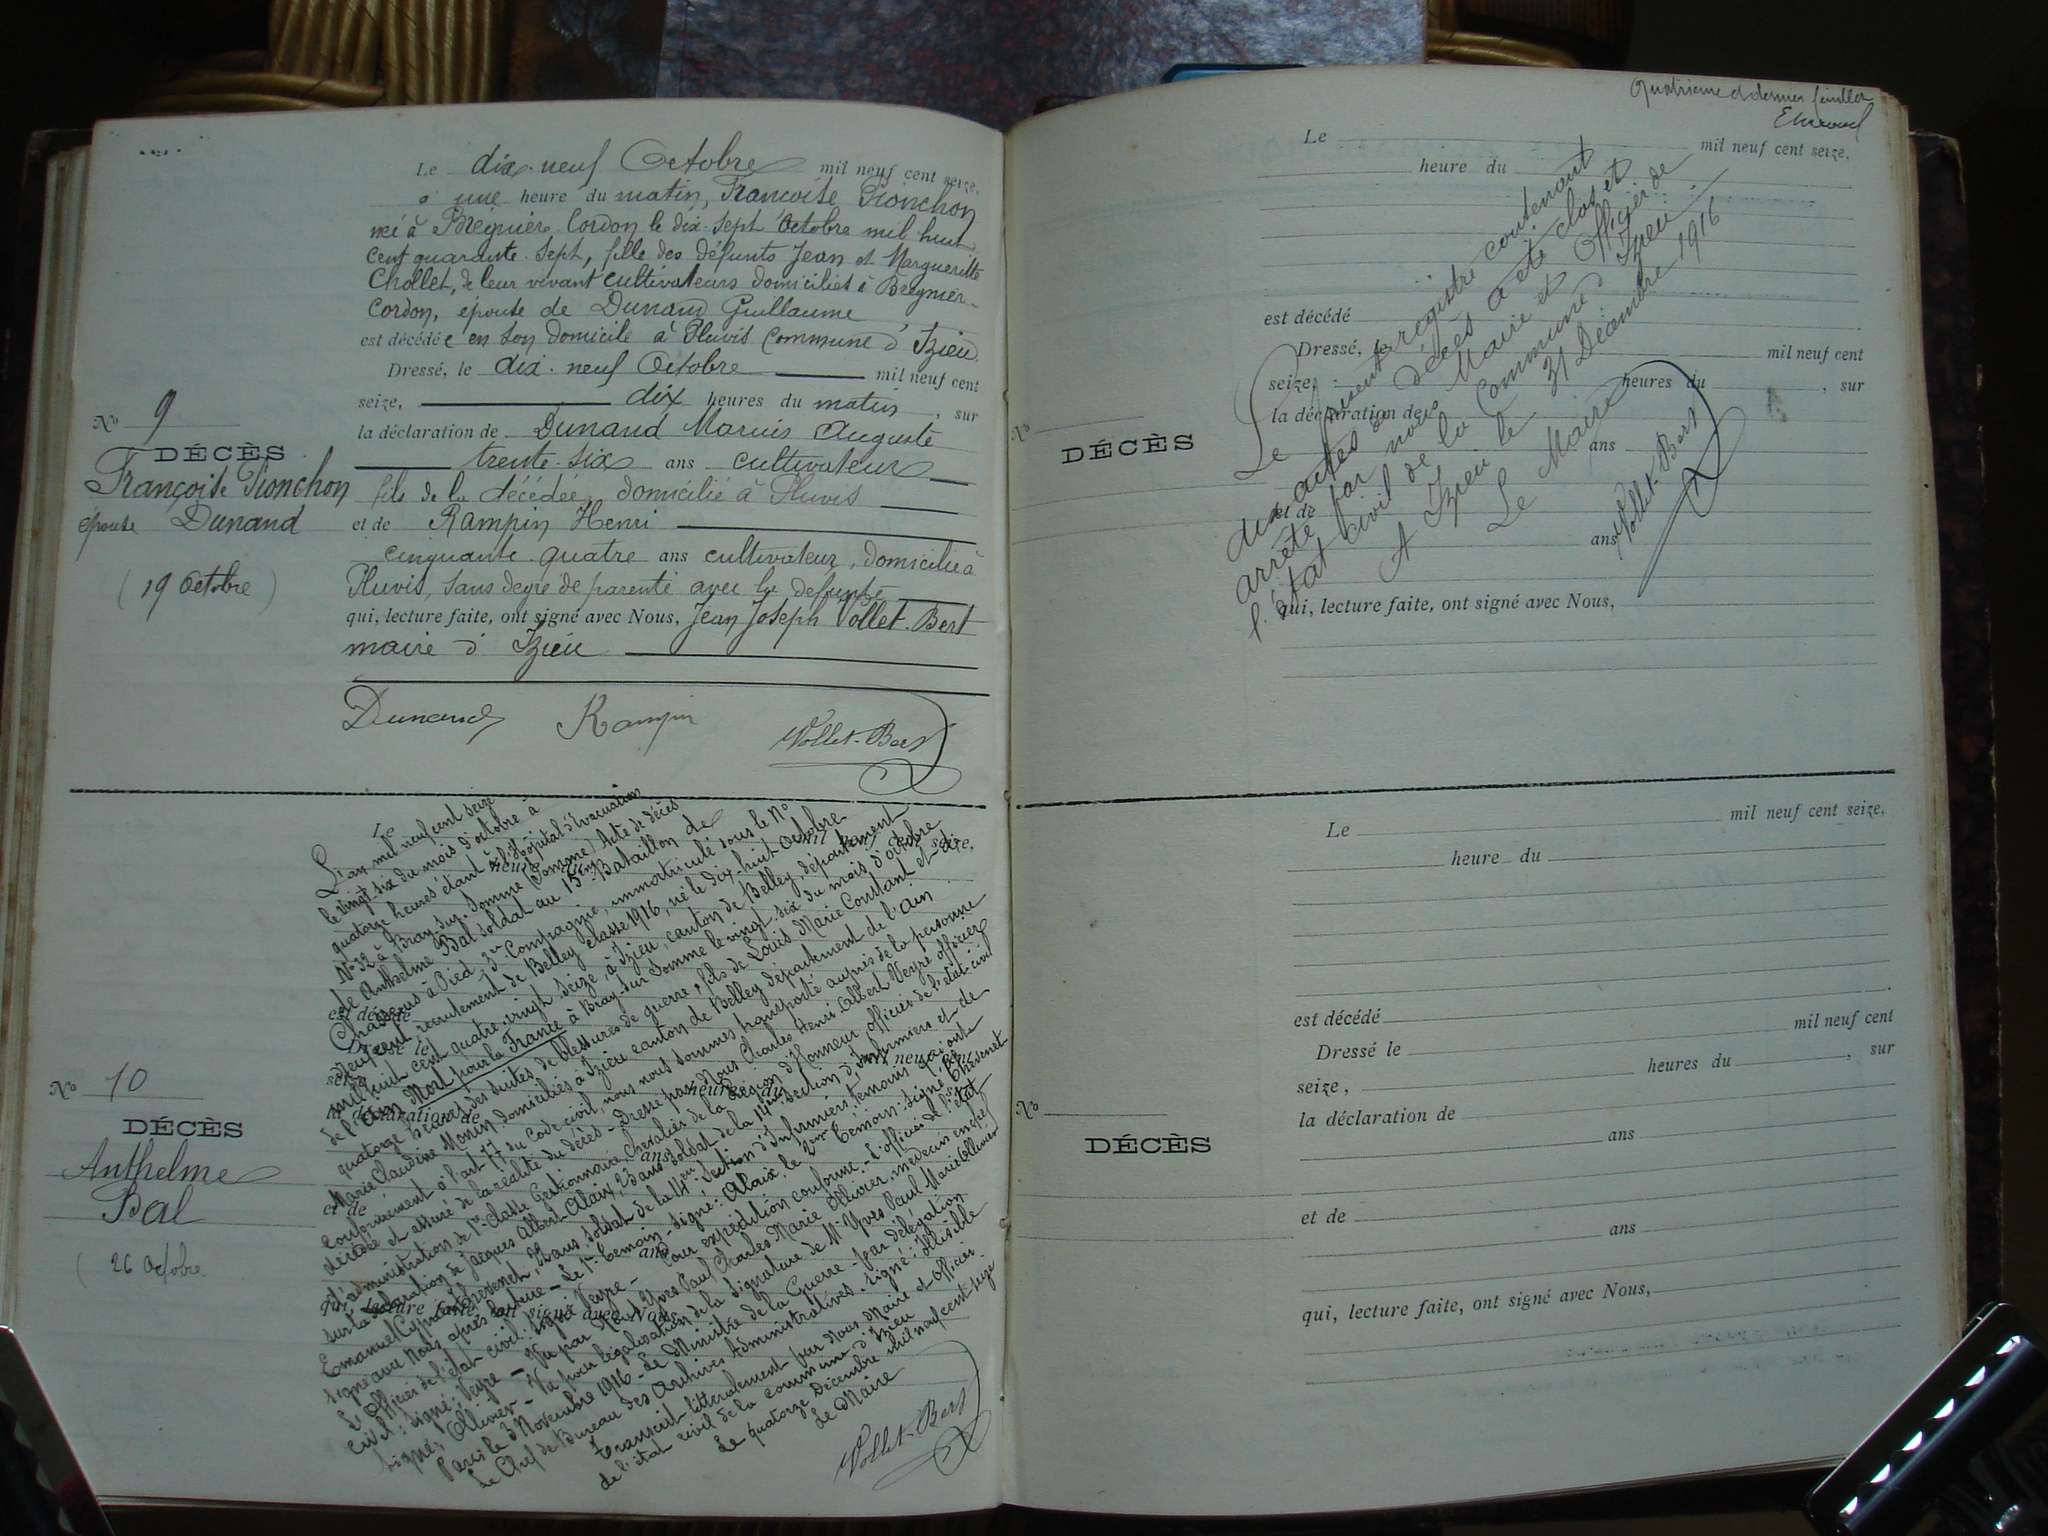 Le dix-neuf Octobre mil neuf cent seize,
à une heure du matin, Françoise Pionchon
née à Brégnier-Cordon le dix-sept Octobre mil huit
cent quarante-sept, fille des défunts Jean et Marguerite
Chollet, de leur vivant cultivateurs domiciliés à Brégnier-
Cordon, épouse de Dunand Guillaume
est décédée en son domicile à Pluvis commune d'Izieu.
Dressé, le dix-neuf Octobre mil neuf cent
seize, dix heures du matin, sur
la déclaration de Dunand Marius Auguste
trente-six ans cultivateur
fils de la décédée, domicilié à Pluvis
et de Rampin Henri
cinquante-quatre ans cultivateur, domicilié à
Pluvis, sans degré de parenté avec la défunte
qui, lecture faite, ont signé avec Nous, Jean Joseph Vollet-Bert
maire d'Izieu
Dunand Rampin Vollet-Bert
No 9
DÉCÈS
Françoise Pionchon
épouse Dunand
(19 Octobre)
No 10
DÉCÈS
Anthelme
Bal
(26 Octobre
L'an mil neuf cent seize
le vingt-six du mois d'octobre à
quatorze heures étant à l'Hôpital d'évacuation
No 32 à Bray-sur-Somme (Somme) Acte de décès
de Anthelme Bal soldat au 15ème Bataillon de
Chasseurs à Pied, 3e Compagnie, immatriculé sous le No
recrutement de Belley classe 1916, né le dix-huit Octobre
mil huit cent quatre-vingt-seize, à Izieu, canton de Belley, département
de l'Ain Mort pour la France à Bray-sur-Somme le vingt-six du mois d'octobre
quatorze heures des suites de blessures de guerre, fils de Louis Marie Constant et de
Marie Claudine Monin, domiciliés à Izieu canton de Belley département de l'Ain
Conformément à l'art. 77 du Code civil, nous nous sommes transporté auprès de la personne
décédée et assuré de la réalité du décès - Dressé par Nous Charles Henri Albert Veyre officier
d'administration de 1re classe Gestionnaire, Chevalier de la Légion d'Honneur, officier de l'état-civil
sur la déclaration de Jacques Albert Alaix, soldat de la 14e section d'infirmiers et de
Emmanuel Chesenet, soldat de la section d'Infirmiers, témoins qui ont
signé avec Nous après lecture - Le 1er témoin - signé: Alaix, le 2ème témoin: signé Chesenet
L'Officier de l'état civil: signé Veyre - Pour expédition conforme - L'officier de l'état
civil: signé: Veyre - Vu par Nous Yves Paul Charles Marie Ollivier, médecin en chef
signé: Ollivier - Vu pour légalisation de la signature de Mr Yves Paul Marie Ollivier
Paris le 3 Novembre 1916 - Le Ministre de la Guerre - par délégation
Le Chef de Bureau des Archives Administratives - signé: illisible
Transcrit littéralement par Nous Maire et Officier
de l'état civil de la commune d'Izieu
Le quatorze Décembre mil neuf cent seize
Le Maire
Vollet-Bert
Quatrième et dernier feuillet
Le mil neuf cent seize,
heure du
est décédé
Dressé, le mil neuf cent
seize, heures du , sur
la déclaration de
ans
et de
ans
qui, lecture faite, ont signé avec Nous,
No
DÉCÈS
Le présent registre contenant
dix actes de décès a été clos et
arrêté par nous Maire et Officier de
l'état civil de la Commune d'Izieu
A Izieu le 31 Décembre 1916
Le Maire
Vollet-Bert
Le mil neuf cent seize,
heure du
est décédé
Dressé le mil neuf cent
seize, heures du , sur
la déclaration de
ans
et de
ans
qui, lecture faite, ont signé avec Nous,
No
DÉCÈS